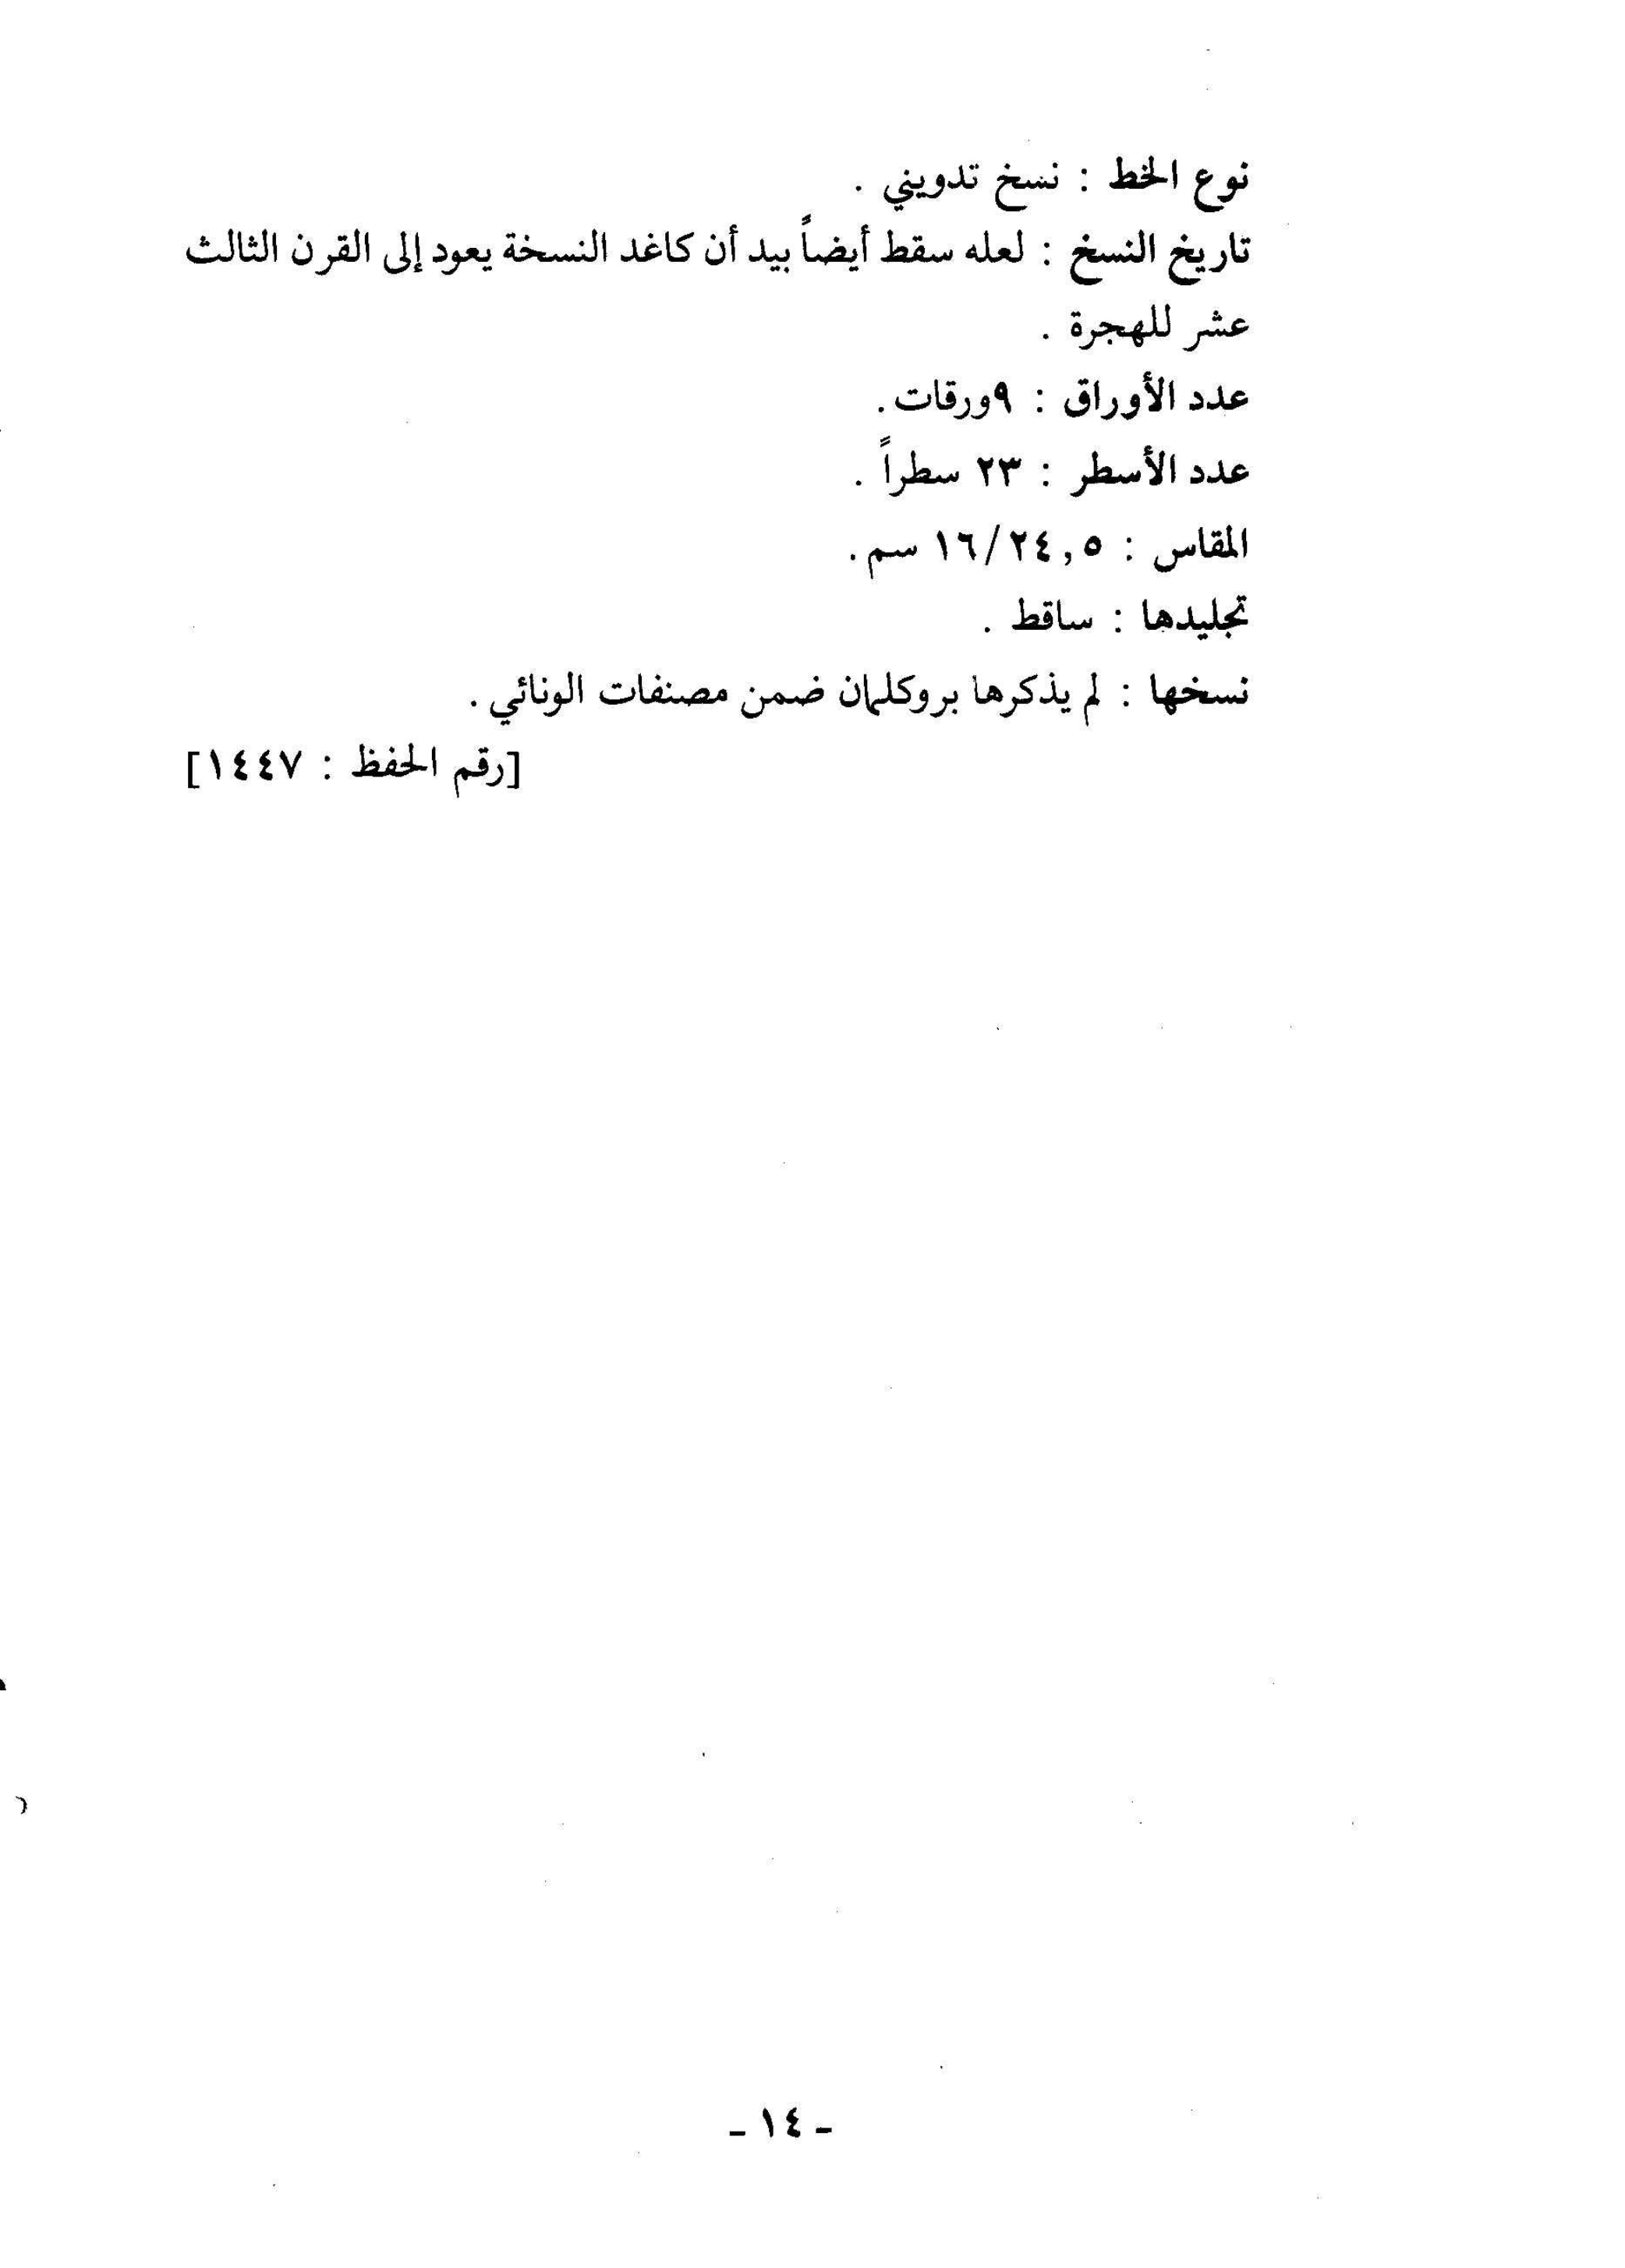 نوع الخط : نسخ تدويني .
تاريخ النسخ : لعله سقط أيضاً بيد أن كاغد النسخة يعود إلى القرن الثالث
عشر للهجرة .
عدد الأوراق : ٩ورقات .
عدد الأسطر : ٢٣ سطراً .
المقاس : ١٦/٢٤,٥ سم .
تجليدها : ساقط .
نسخها : لم يذكرها بروكلمان ضمن مصنفات الونائي .
[رقم الحفظ : ١٤٤٧]
- ١٤ -